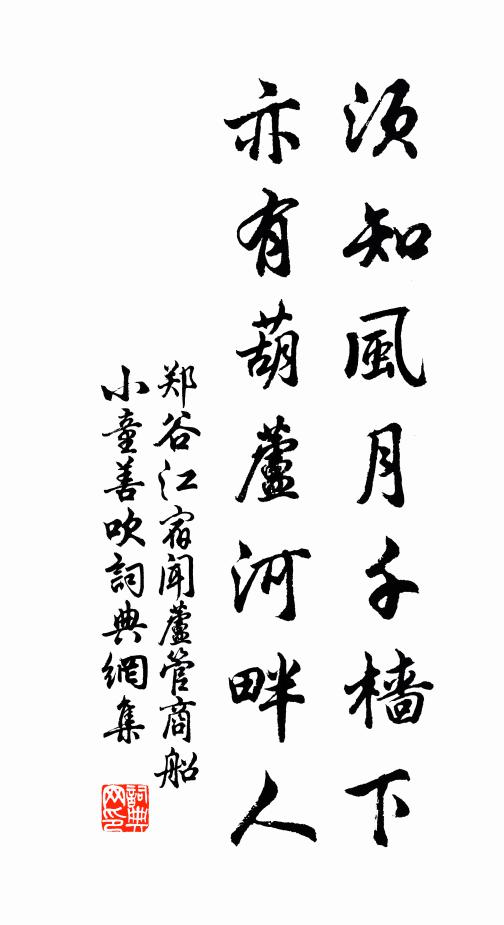 須知風月千檣下
亦有葫蘆河畔人
郑谷江宿闻蘆管商船
小童善吹詞典網集
詞典网印